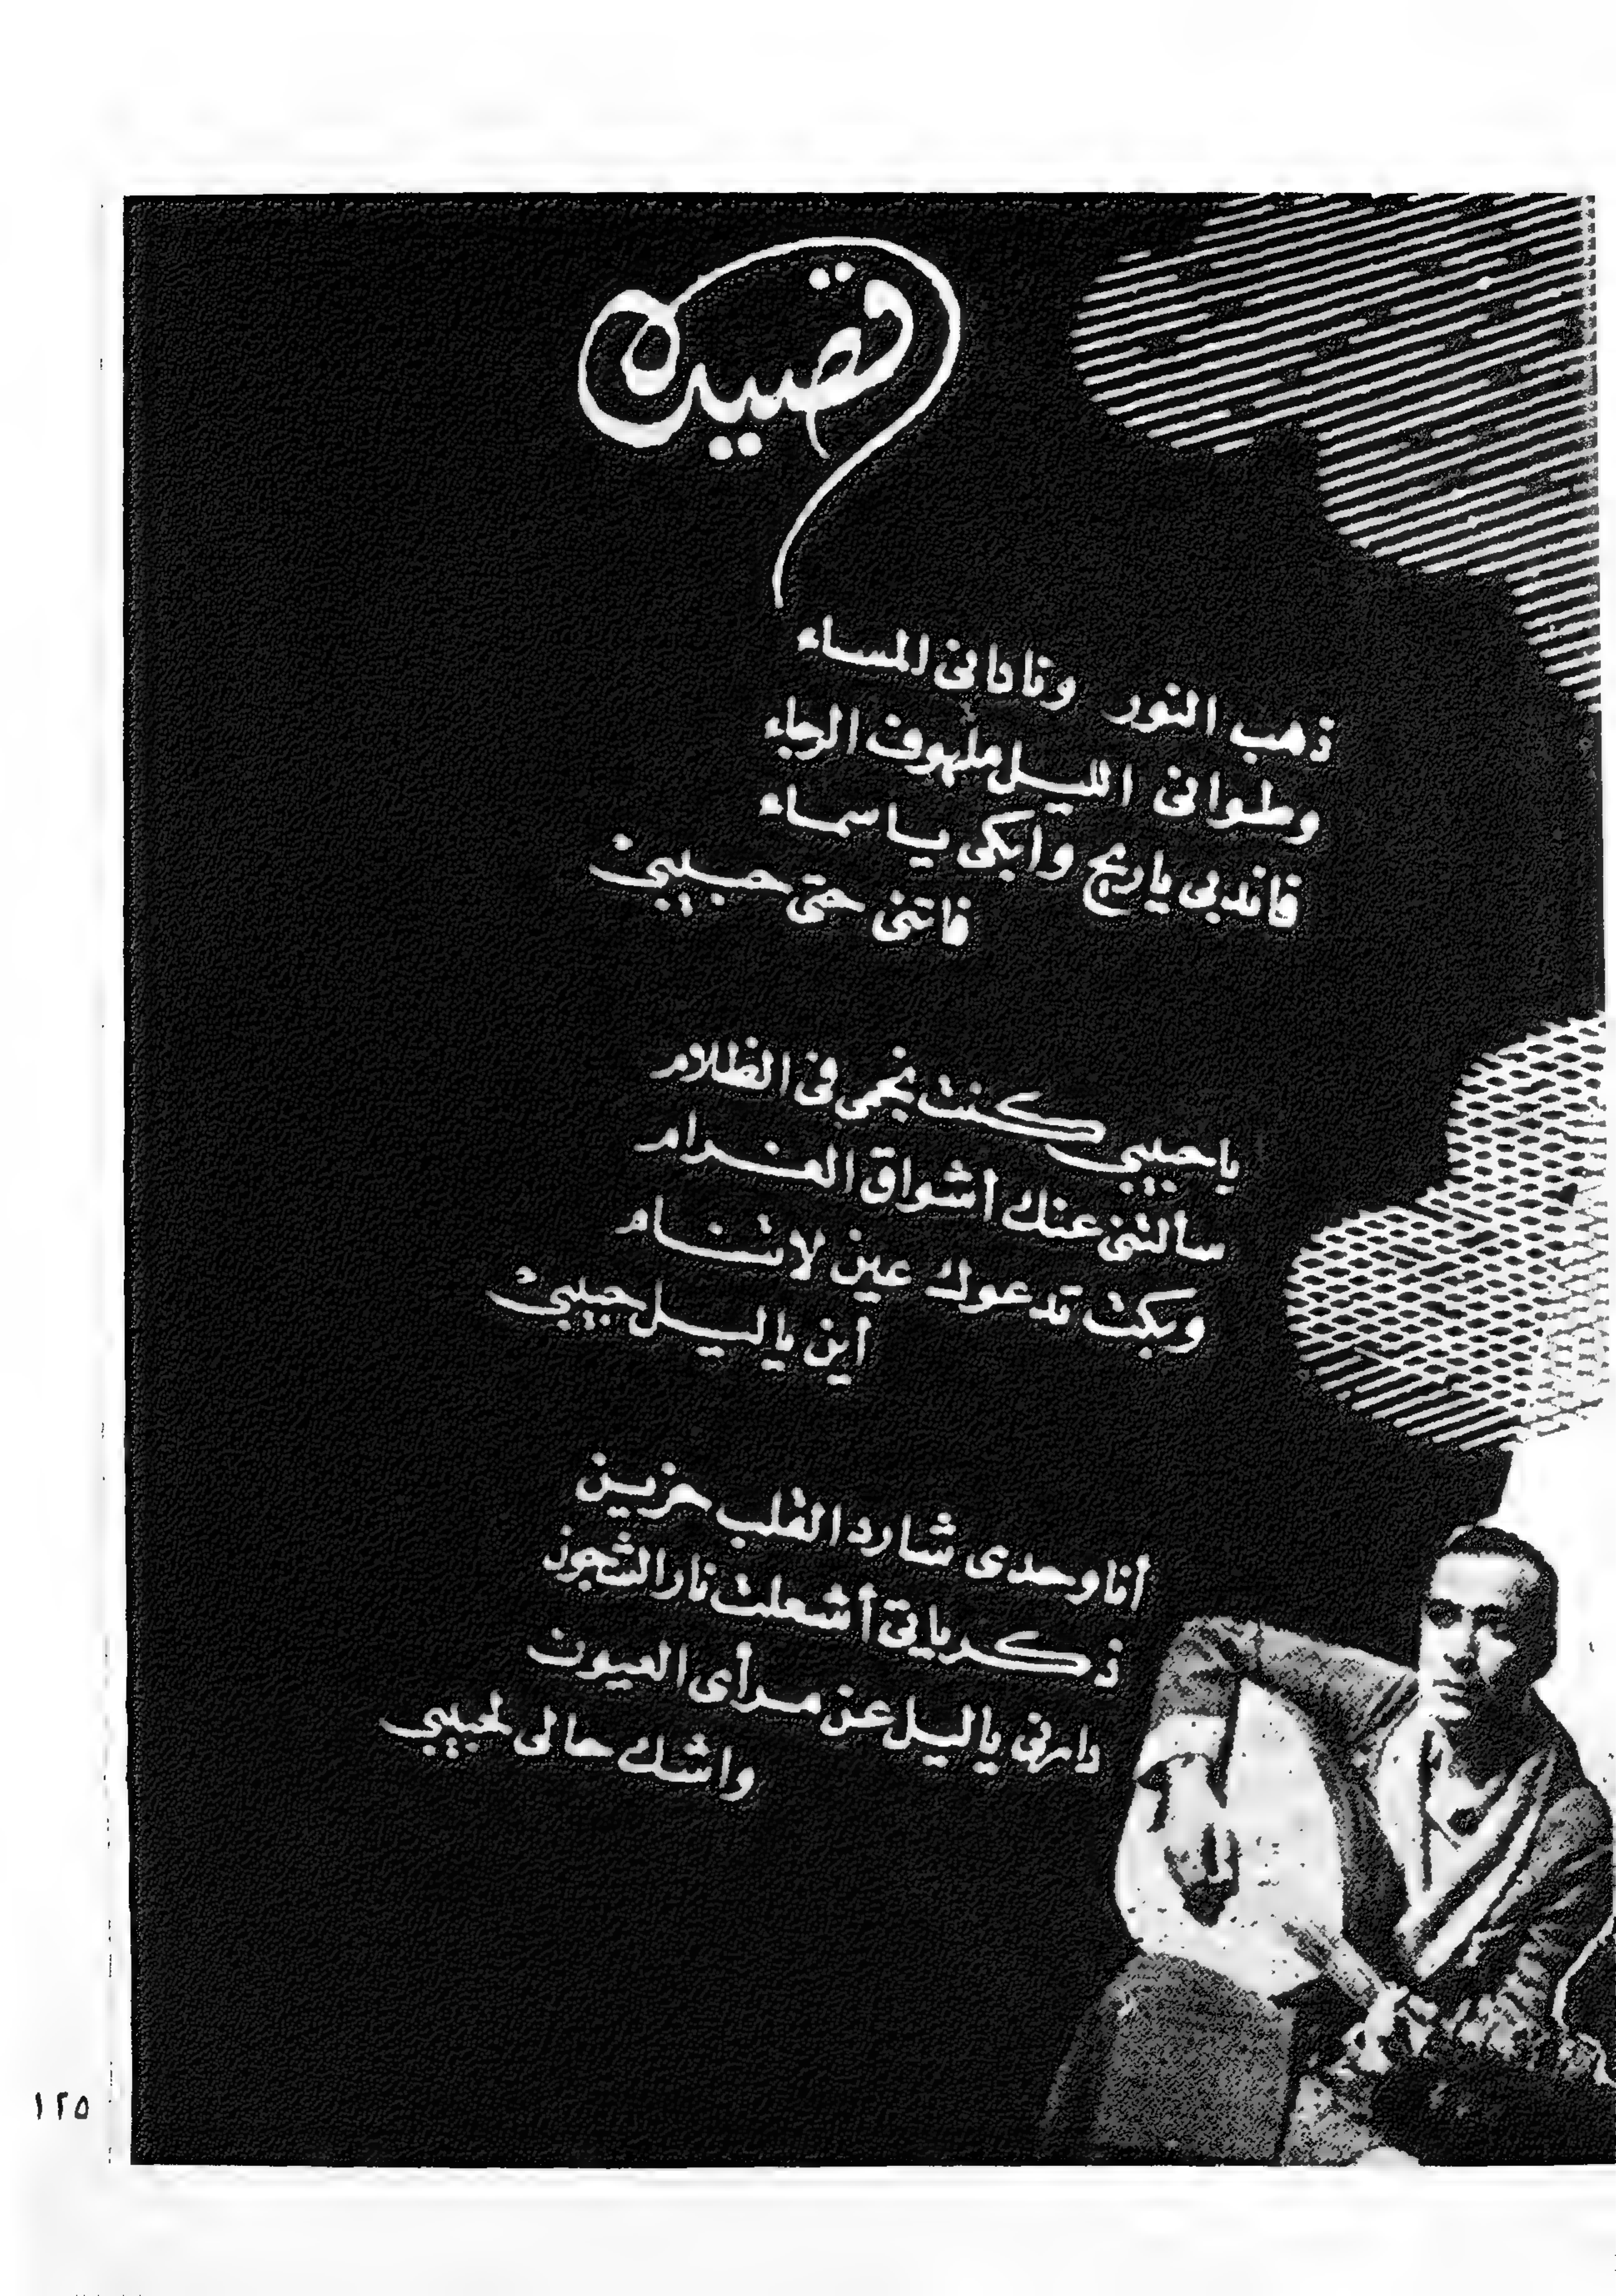 قصيدة
ذهب النور ونادانى المساء
وطوانى الليل ملهوف الرجاء
فاندبى ياريح وابكى يا سماء
فاتنى حتى حبيبى
ياحبيبى كنت نجمى فى الظلام
سألتنى عنك اشواق الغرام
وبكت تدعوك عين لاتنام
أين ياليل حبيبى
أنا وحدى شارد القلب حزين
ذكرياتى أشعلت نار الشجون
دارنى ياليل عن مرأى العيون
واشك حالى لحبيبى
١٢٥